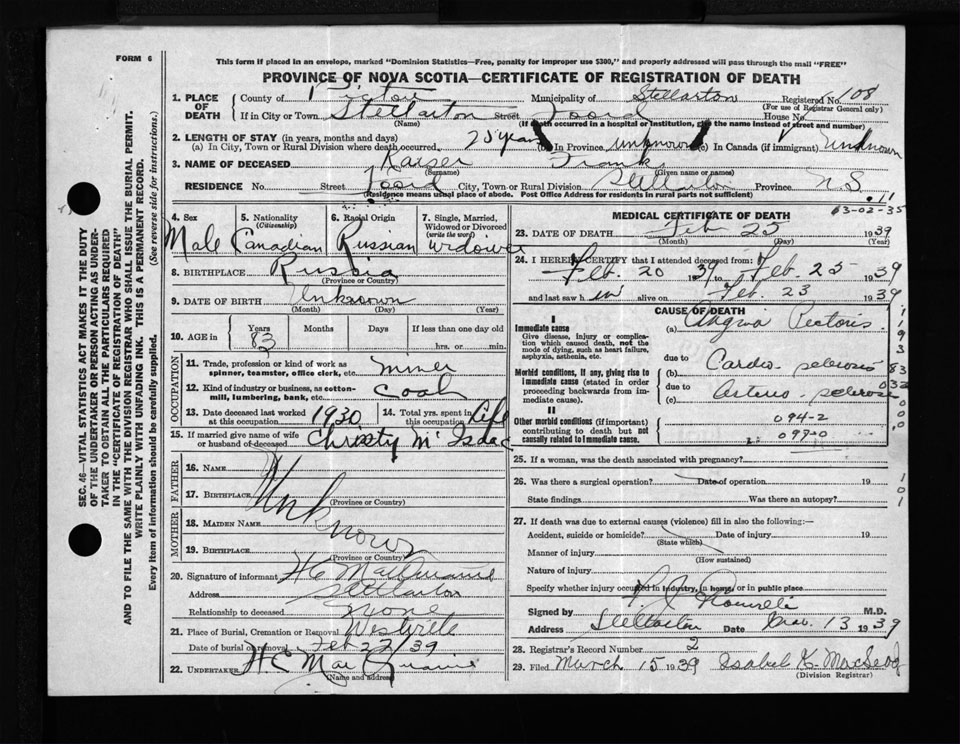 FORM 6
This form if placed in an envelope, marked "Dominion Statistics—Free, penalty for improper use $300," and properly addressed will pass through the mail "FREE"
PROVINCE OF NOVA SCOTIA—CERTIFICATE OF REGISTRATION OF DEATH
1. PLACE OF DEATH
County of Pictou Municipality of Stellarton Registered No. 108
(For use of Registrar General only)
If in City or Town Stellarton Street Foord House No.
(Name) (If death occurred in a hospital or institution, give the name instead of street and number)
2. LENGTH OF STAY (in years, months and days)
(a) In City, Town or Rural Division where death occurred. 25 years (b) In Province unknown (c) In Canada (if immigrant) unknown
3. NAME OF DECEASED Kaiser Frank
(Surname) (Given name or names)
RESIDENCE No. Street Foord City, Town or Rural Division Stellarton Province N.S.
(Residence means usual place of abode. Post Office Address for residents in rural parts not sufficient)
4. Sex 5. Nationality (Citizenship) 6. Racial Origin 7. Single, Married, Widowed or Divorced (write the word)
Male Canadian Russian widower
8. BIRTHPLACE Russia
(Province or Country)
9. DATE OF BIRTH Unknown
(Month) (Day) (Year)
10. AGE in Years Months Days If less than one day old
83 hrs. or min.
OCCUPATION
11. Trade, profession or kind of work as spinner, teamster, office clerk, etc. miner
12. Kind of industry or business, as cotton-mill, lumbering, bank, etc. coal
13. Date deceased last worked at this occupation 1930 14. Total yrs. spent in this occupation life
15. If married give name of wife or husband of deceased Christy McIsaac
FATHER
16. NAME
17. BIRTHPLACE
(Province or Country)
MOTHER
18. MAIDEN NAME
19. BIRTHPLACE
(Province or Country)
Unknown
20. Signature of informant H C
Address Stellarton
Relationship to deceased none
21. Place of Burial, Cremation or Removal Westville
Date of burial or removal Feb 27/39
22. UNDERTAKER H C
(Name and address)
MEDICAL CERTIFICATE OF DEATH
13-02-35
23. DATE OF DEATH Feb 25 1939
(Month) (Day) (Year)
24. I HEREBY CERTIFY that I attended deceased from:
Feb. 20 1939 to Feb. 25 1939
and last saw h im alive on Feb. 23 1939
CAUSE OF DEATH
I
Immediate cause
Give disease, injury or complication which caused death, not the mode of dying, such as heart failure, asphyxia, asthenia, etc.
(a) Angina Pectoris
due to
Morbid conditions, if any, giving rise to immediate cause (stated in order proceeding backwards from immediate cause).
(b) Cardio sclerosis
due to
(c) Arterio sclerosis
II
Other morbid conditions (if important) contributing to death but not causally related to immediate cause.
094-2
097-0
25. If a woman, was the death associated with pregnancy?
26. Was there a surgical operation? Date of operation. 19
State findings Was there an autopsy?
27. If death was due to external causes (violence) fill in also the following:—
Accident, suicide or homicide? Date of injury. 19
(State which)
Manner of injury
(How sustained)
Nature of injury
Specify whether injury occurred in industry, in home, or in public place
Signed by M.D.
Address Stellarton Date Mar. 13 1939
28. Registrar's Record Number 2
29. Filed March 15 1939 Isabel K. MacLeod
(Division Registrar)
SEC. 46—VITAL STATISTICS ACT MAKES IT THE DUTY
OF THE UNDERTAKER OR PERSON ACTING AS UNDER-
TAKER TO OBTAIN ALL THE PARTICULARS REQUIRED
IN THE "CERTIFICATE OF REGISTRATION OF DEATH"
AND TO FILE THE SAME WITH THE DIVISION REGISTRAR WHO SHALL ISSUE THE BURIAL PERMIT.
WRITE PLAINLY WITH UNFADING INK. THIS IS A PERMANENT RECORD.
Every item of information should be carefully supplied. (See reverse side for instructions.)